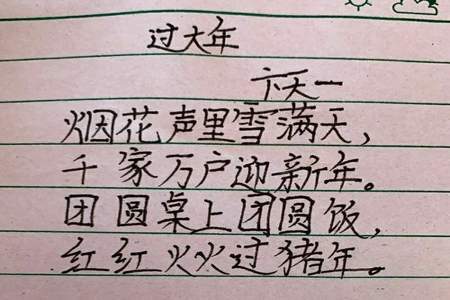 过大年
卞天一
烟花声里雪满天，
千家万户迎新年。
团圆桌上团圆饭，
红红火火过猪年。